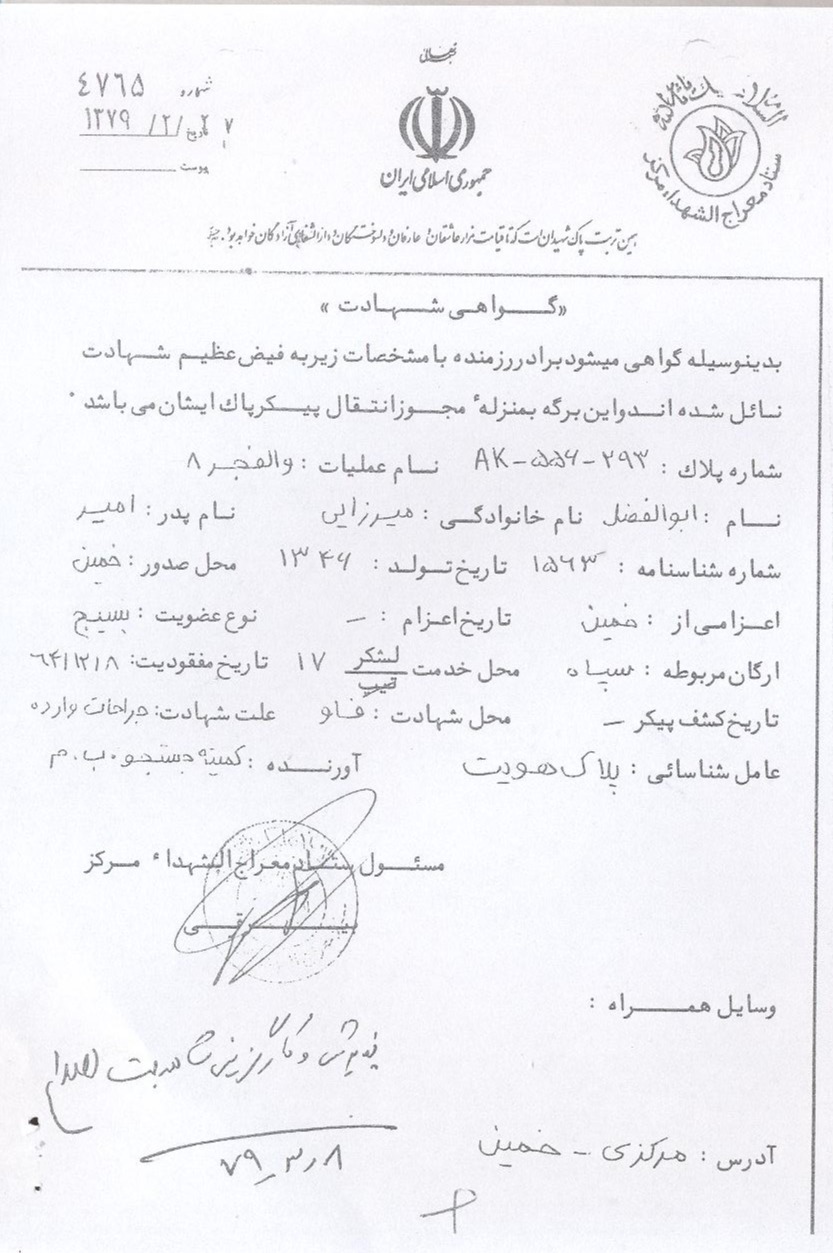 بسمه تعالی
شماره ٤٧٦٥
تاریخ ١٣٧٩ /٢/ ٢٧
پیوست
جمهوری اسلامی ایران
ستاد معراج الشهداء مرکز
همین تربت پاک شهیدان است که تا قیامت مزار عاشقان و عارفان و دلسوختگان و دارالشفای آزادگان خواهد بود.
«گواهی شهادت»
بدینوسیله گواهی میشود برادر رزمنده با مشخصات زیر به فیض عظیم شهادت
نائل شده اند و این برگه بمنزلهٔ مجوز انتقال پیکر پاك ایشان می باشد .
شماره پلاك : AK-۵۵۶-۲۹۳ نام عملیات : والفجر ۸
نام : ابوالفضل نام خانوادگی : میرزایی نام پدر : امیر
شماره شناسنامه : ۱۵۶۳ تاریخ تولد : ۱۳۴۶ محل صدور : خمین
اعزامی از : خمین تاریخ اعزام : – نوع عضویت : بسیج
ارگان مربوطه : سپاه محل خدمت لشکر تیپ ۱۷ تاریخ مفقودیت: ۶۴/۱۲/۸
تاریخ کشف پیکر – محل شهادت : فاو علت شهادت: جراحات وارده
عامل شناسائی : پلاک هویت آورنده : کمیته جستجو . ب . م
مسئول ستاد معراج الشهداء مرکز
وسایل همراه :
آدرس : مرکزی - خمین
۷۹٫۳٫۸